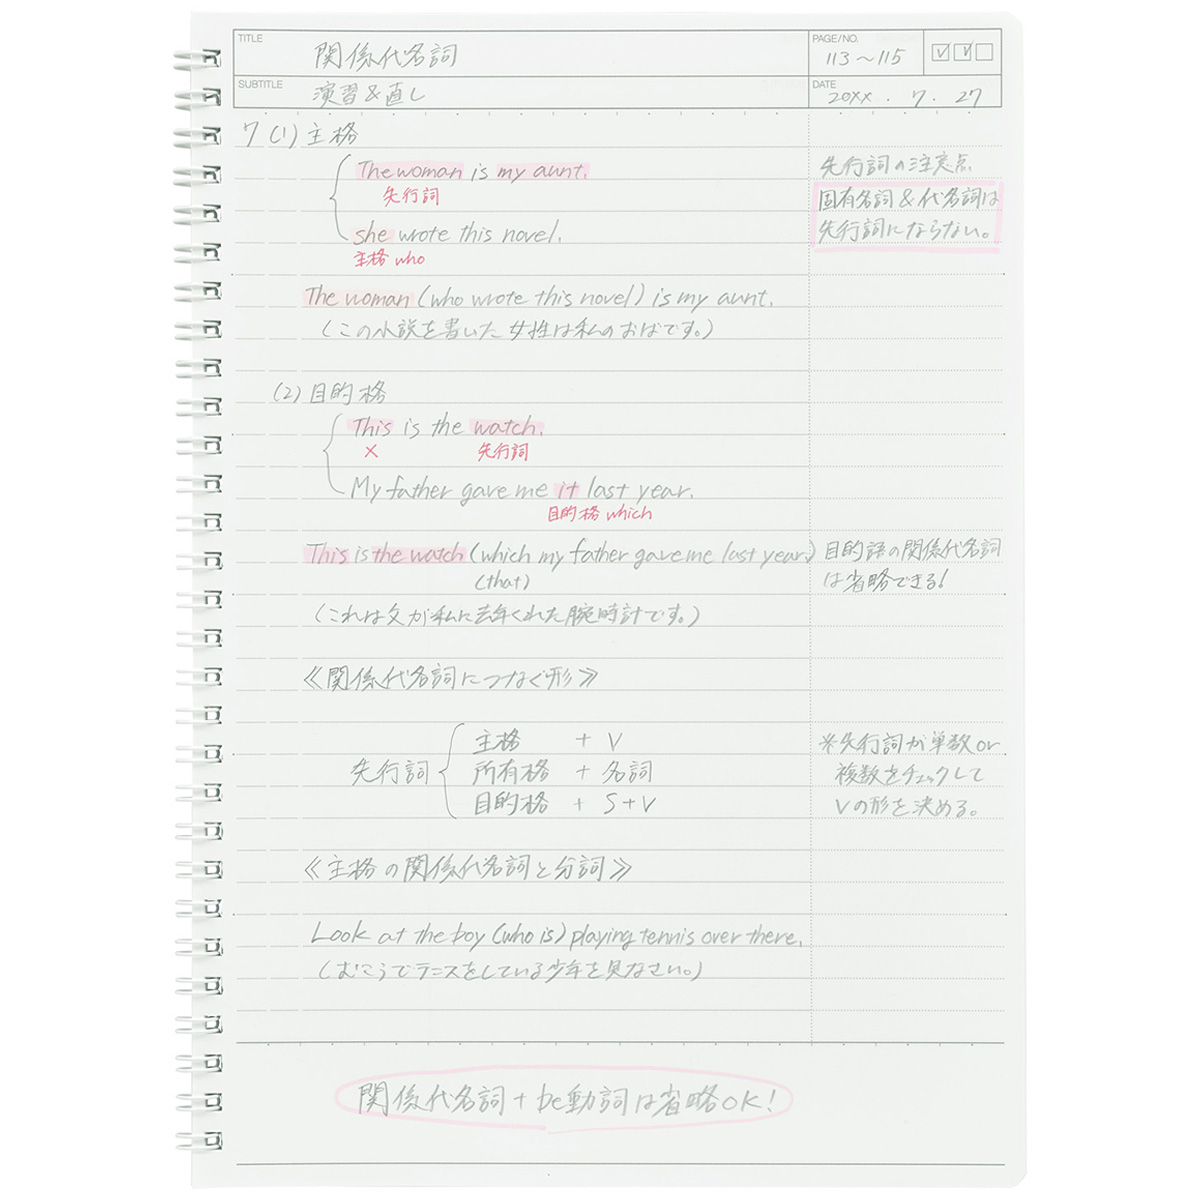 TITLE
関係代名詞
PAGE/NO.
113〜115
SUBTITLE
演習&直し
DATE
20XX . 7 . 27
7 (1) 主格
The woman is my aunt.
先行詞
she wrote this novel.
主格 who
先行詞の注意点
固有名詞&代名詞は
先行詞にならない。
The woman (who wrote this novel) is my aunt.
(この小説を書いた女性は私のおばです。)
(2) 目的格
This is the watch.
× 先行詞
My father gave me it last year.
目的格 which
This is the watch (which my father gave me last year.)
(that)
目的語の関係代名詞
は省略できる!
(これは父が私に去年くれた腕時計です。)
《関係代名詞につなぐ形》
先行詞
主格 + V
所有格 + 名詞
目的格 + S+V
※先行詞が単数or
複数をチェックして
Vの形を決める。
《主格の関係代名詞と分詞》
Look at the boy (who is) playing tennis over there.
(むこうでテニスをしている少年を見なさい。)
関係代名詞+be動詞は省略OK!